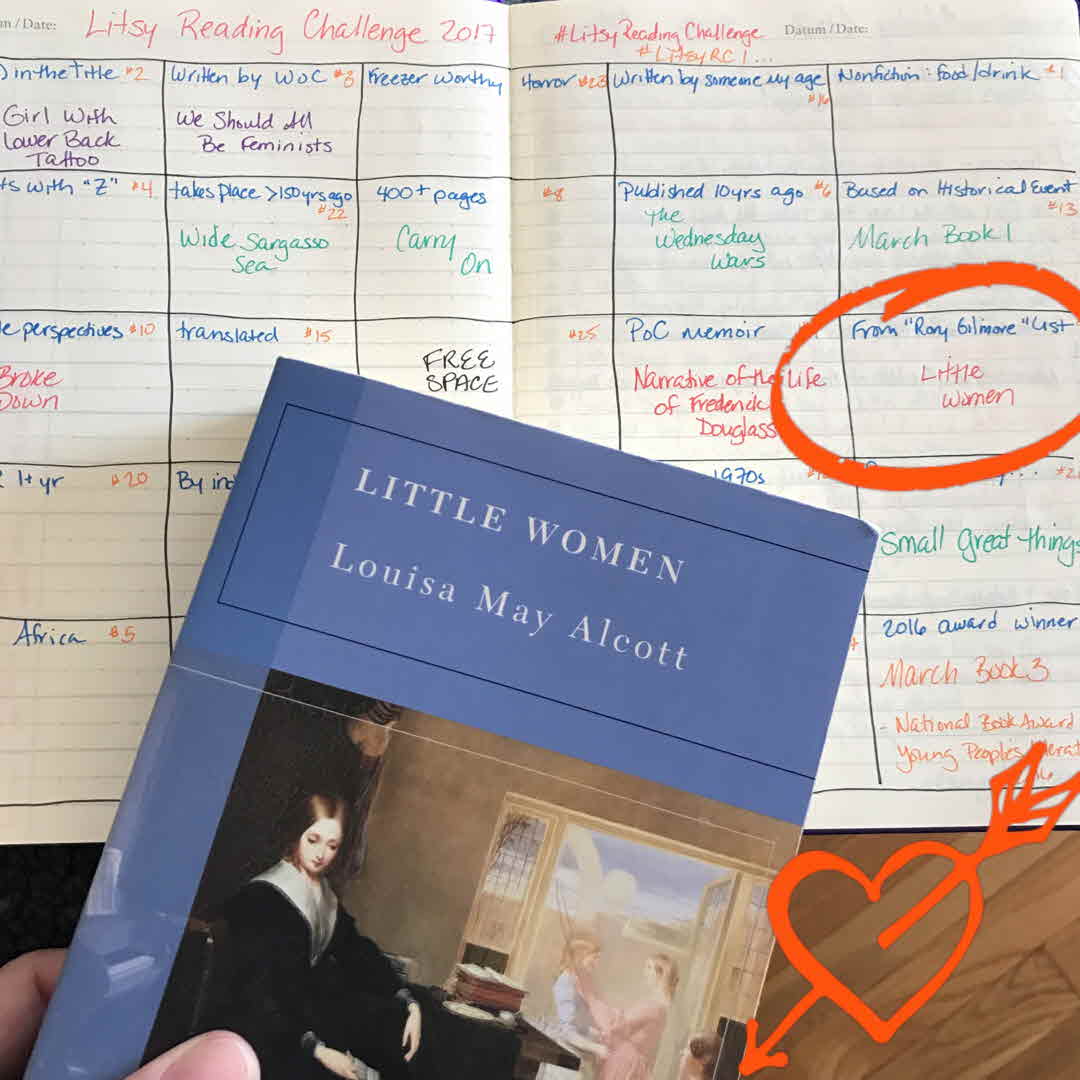 m / Date:
Litsy Reading Challenge 2017
#LitsyReadingChallenge
#LitsyRC1...
Datum / Date:
in the Title #2
Girl With
Lower Back
Tattoo
Written by WoC #3
We Should All
Be Feminists
Freezer Worthy
Horror #23
Written by someone my age
#16
Nonfiction: food/drink #1
ts with "Z" #4
takes place >150yrs ago
#22
Wide Sargasso
Sea
400+ pages
Carry
On
#8
Published 10yrs ago #6
The
Wednesday
Wars
Based on Historical Event
#13
March Book 1
le perspectives #10
Broke
Down
translated #15
FREE
SPACE
#25
PoC memoir
Narrative of the Life
of Frederick
Douglass
From "Rory Gilmore" List
Little
Women
1+ yr #20
By ind
1970s
Small great things
Africa #5
2016 award winner
March Book 3
- National Book Award
Young People's
LITTLE WOMEN
Louisa May Alcott